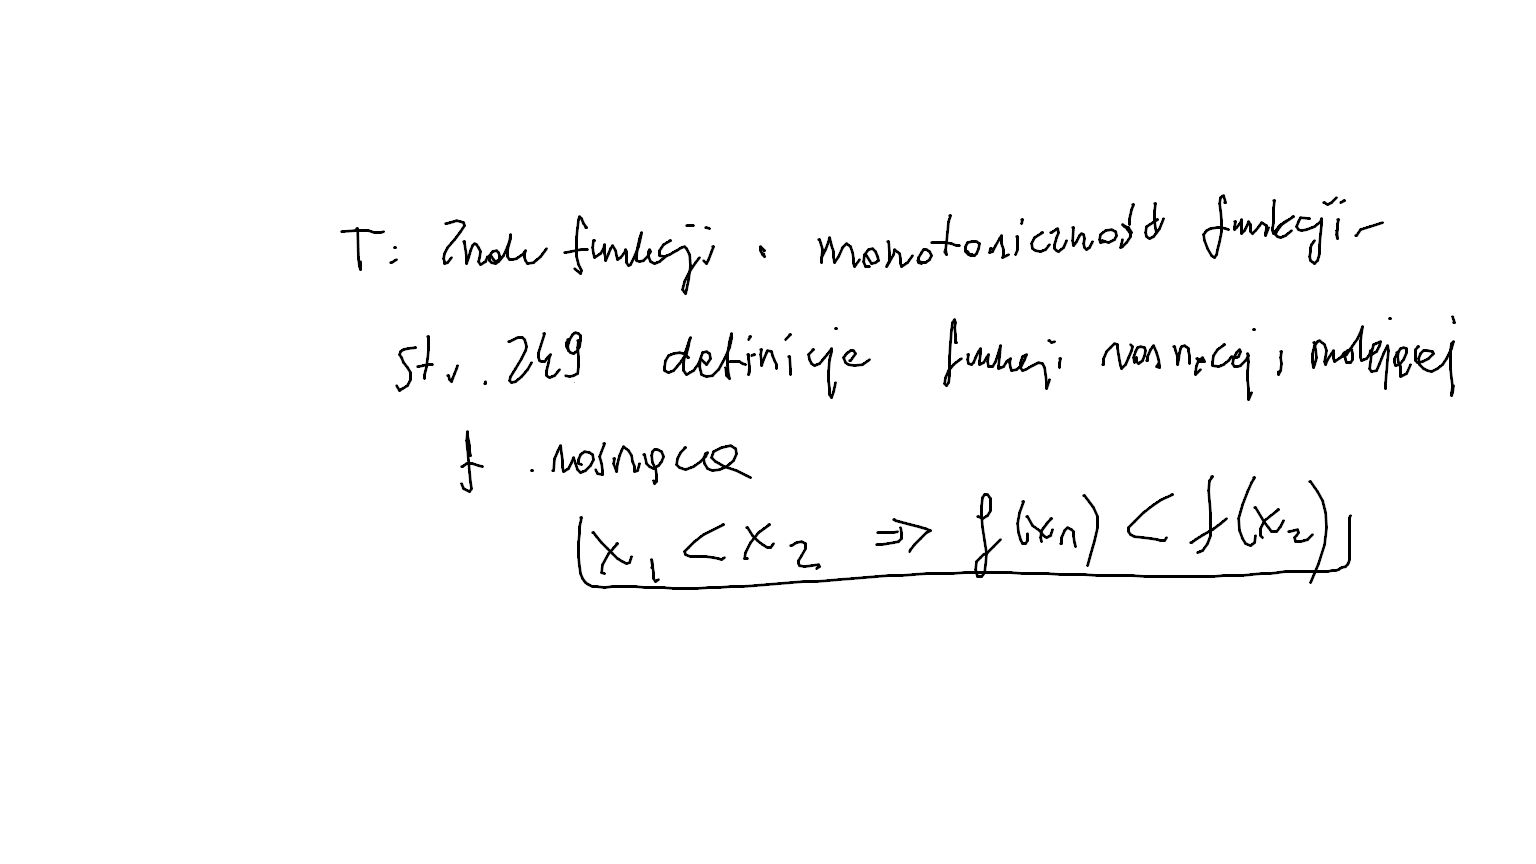 T: Znak funkcji. monotoniczność funkcji -
str. 249 definicje funkcji rosnącej i malejącej
f. rosnąca
x₁ < x₂ ⇒ f(x₁) < f(x₂)